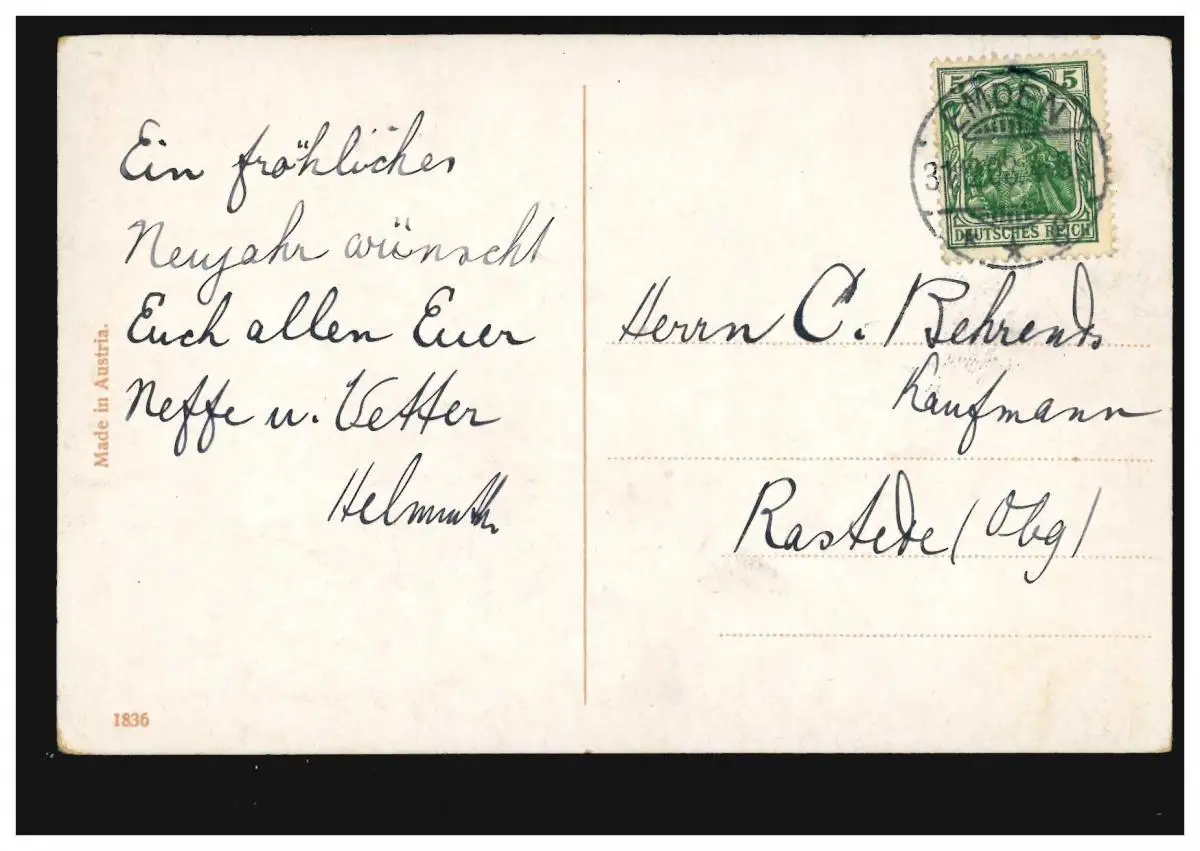 Ein fröhliches
Neujahr wünscht
Euch allen Euer
Neffe u. Vetter
Helmuth.
Made in Austria.
1836
5 5
DEUTSCHES REICH
EMDEN
Herrn C. Behrends
Kaufmann
Rastede (Obg)